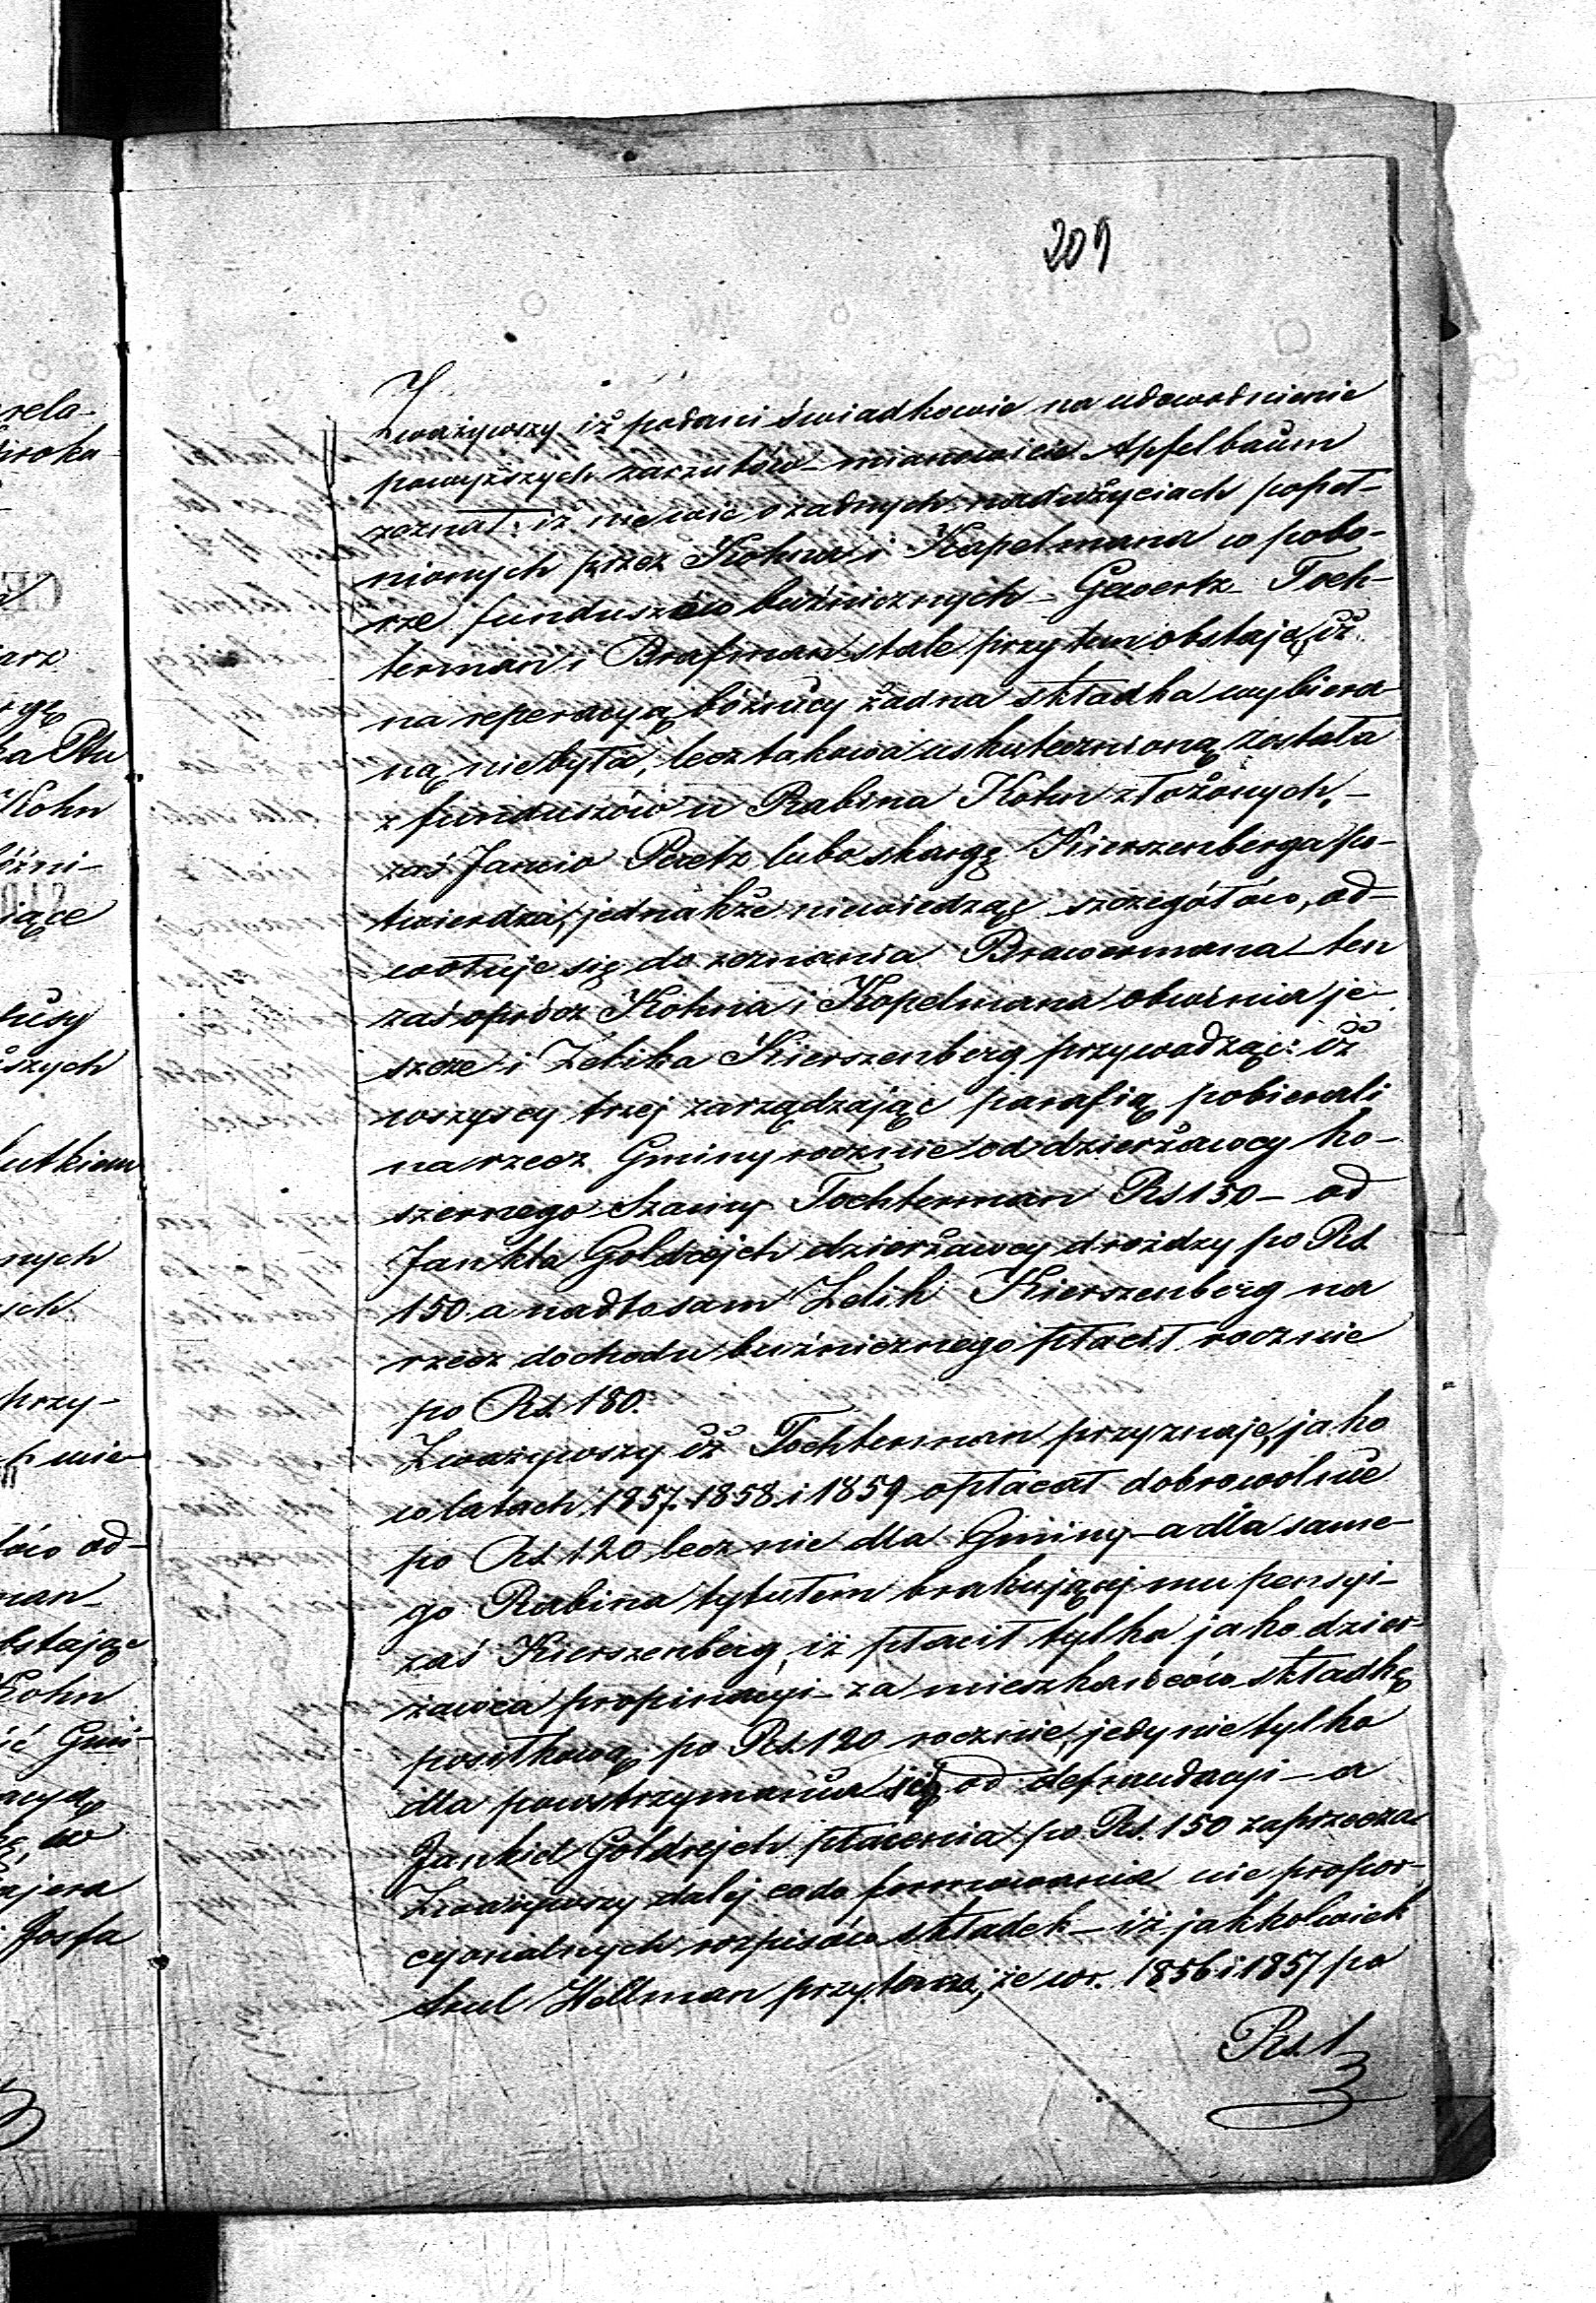 209
Zważywszy iż podani świadkowie na udowodnienie
powyższych zarzutów – mianowicie Apfelbaum
zeznał: iż nie wie o żadnych nadużyciach popeł-
nionych przez Kohna i Kapelmana w pobo-
rze funduszów buźnicznych – Gewertz – Toch-
terman i Brafman stale przy tem obstają, iż
na reperacyą bóźnicy żadna składka wybiera-
ną nie była, lecz takowa uskutecznioną została
z funduszów u Rabina Kohn złożonych, –
zaś Peretz lubo skargę Kierszenberga po-
twierdza, jednakże niewiedząc szczegółów, od-
wołuje się do zeznania Brawermana – ten
zaś oprócz Kohna i Kopelmana obwinia je-
szcze i Zelika Kierszenberg przywodząc: iż
wszyscy trzej zarządzając parafią, pobierali
na rzecz Gminy rocznie od dzierżawcy ko-
szernego Szamy Tochterman Rs 150 – od
Jankla Goldrejch dzierżawcy drożdzy po Rs.
150 a nadto sam Zelik Kierszenberg na
rzecz dochodu buźnicznego płacił rocznie
po Rs. 180.
Zważywszy iż Tochterman przyznaje, jako
w latach 1857. 1858 i 1859 opłacał dobrowolnie
po Rs. 120 lecz nie dla Gminy – a dla same-
go Rabina tytułem brakującej mu pensyi –
zaś Kierszenberg, iż płacił tylko jako dzier-
żawca propinacyi – za mieszkańców składkę
posiłkową po Rs. 120 rocznie, jedynie tylko
dla powstrzymania ich od defraudacyi – a
Jankiel Goldrejch płacenia po Rs. 150 zaprzecza
Zważywszy dalej co do formowania nie propor-
cyonalnych rozpisów składek – iż jakkolwiek
Srul Hellman przytacza, że w r. 1856 i 1857 po
Rs. 1